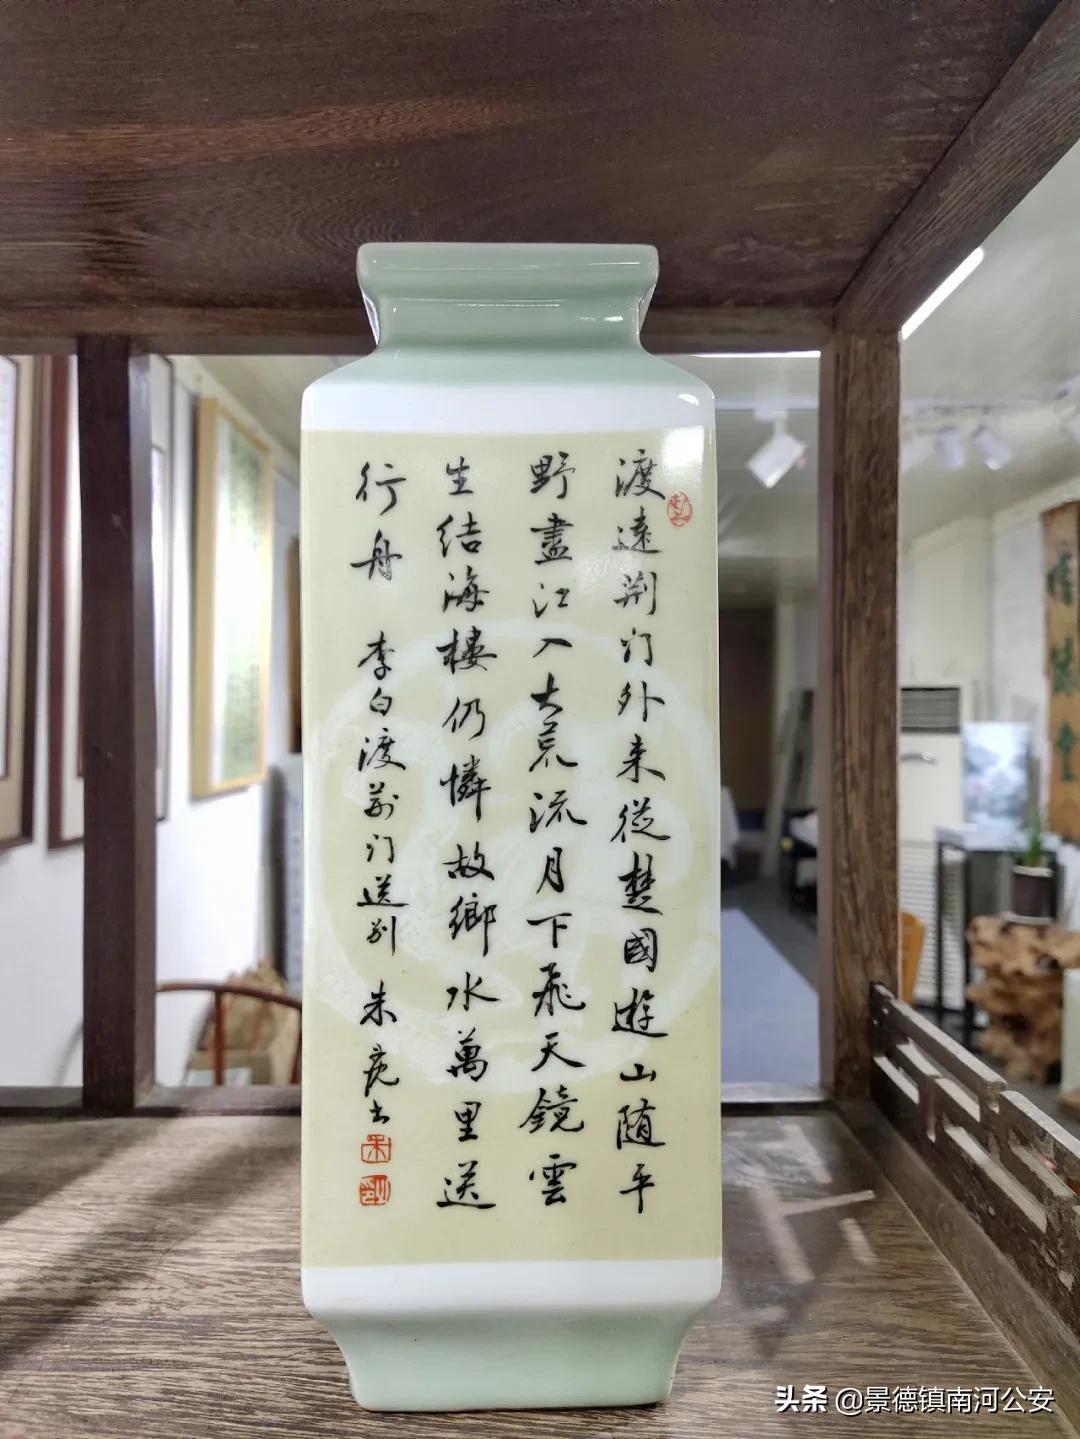 渡遠荆门外来從楚國遊山随平
野盡江入大荒流月下飛天鏡雲
生结海樓仍憐故鄉水萬里送
行舟 李白渡荆门送别 朱亮书
头条 @景德镇南河公安